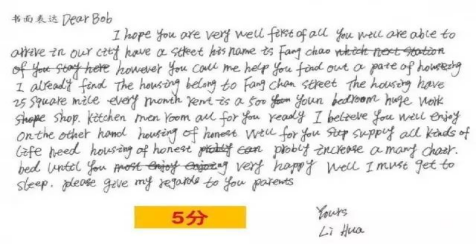 书面表达 Dear Bob
I hope you are very well first of all you well are able to
arrive in our city have a street his name is Fang chao which next station
of you stay here however you call me help you find out a pate of houseing
I already find The housing belong to Fang chan street The housing have
25 square mile every month rent is a 500 yuan Youn bedroom huge work
shope shop. kitchen men room all for you ready I believe you well enjoy
On the other hand housing of honest well for you step supply all kinds of
life need housing of honest probly can probly increase a many chair.
bed until you most enjoy enjoying very happy Well I must get to
sleep. please give my regards to you parents
5分
Yours
Li Hua